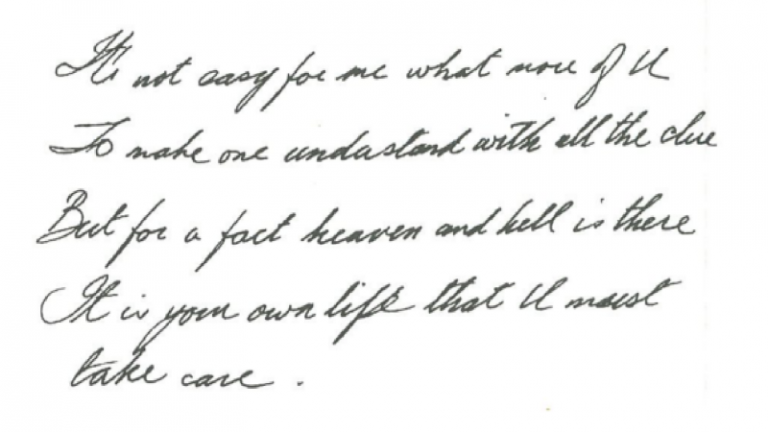 It's not easy for me what more of U
To make one understand with all the clue
But for a fact heaven and hell is there
It is your own life that U must
take care .